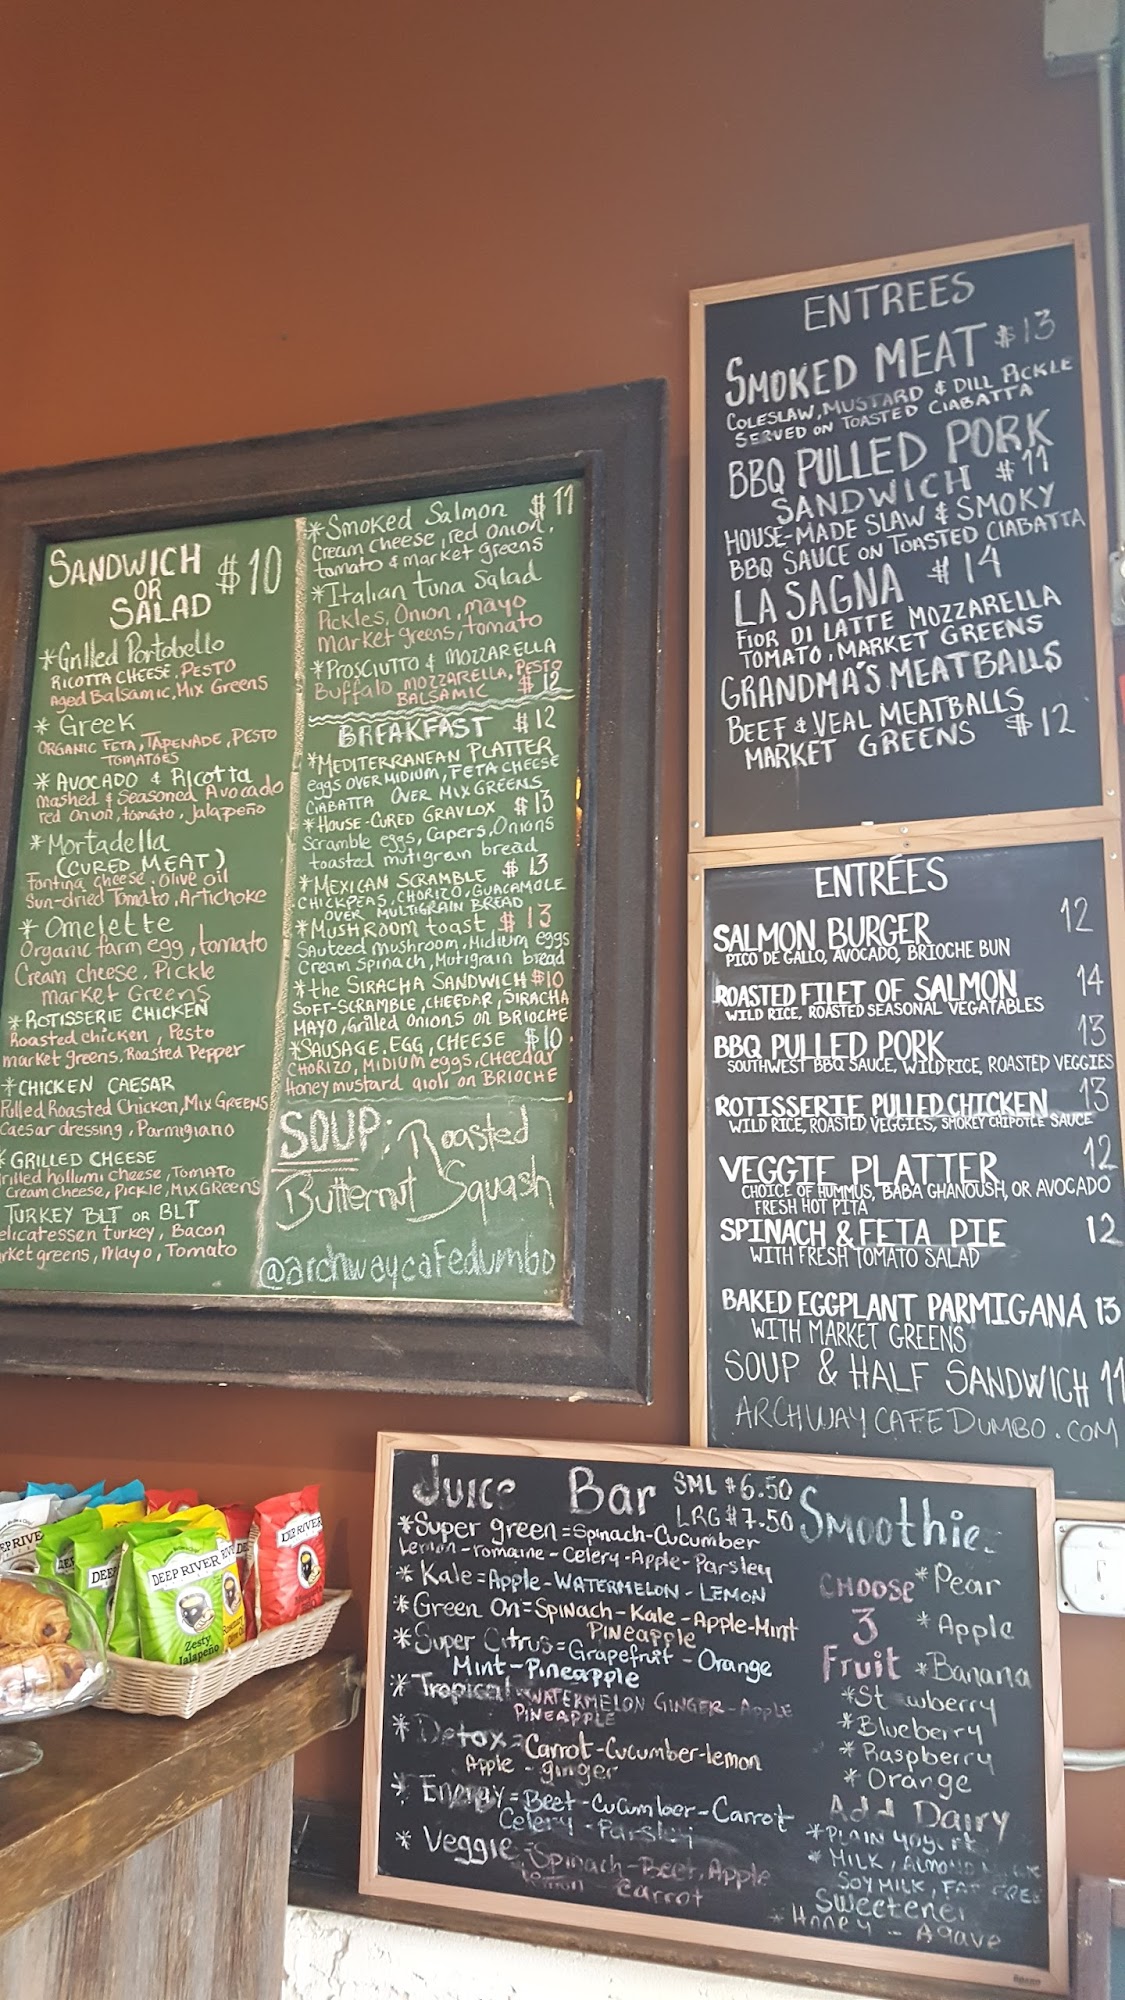 SANDWICH
OR
SALAD
$10
*Grilled Portobello
RICOTTA CHEESE, PESTO
Aged Balsamic, Mix Greens
* Greek
ORGANIC FETA, TAPENADE, PESTO
TOMATOES
* AVOCADO & Ricotta
Mashed & Seasoned Avocado
red onion, tomato, Jalapeño
*Mortadella
(CURED MEAT)
Fontina cheese, olive oil
Sun-dried Tomato, Artichoke
* Omelette
Organic farm egg, tomato
Cream cheese, Pickle
market Greens
* ROTISSERIE CHICKEN
Roasted chicken, Pesto
market greens, Roasted Pepper
*CHICKEN CAESAR
Pulled Roasted Chicken, Mix GREENS
Caesar dressing, Parmigiano
* GRILLED CHEESE
rilled hollumi cheese, TOMATO
Cream cheese, Pickle, Mix GREENS
TURKEY BLT OR BLT
elicatessen turkey, Bacon
rket greens, mayo, Tomato
*Smoked Salmon $11
Cream cheese, red onion,
tomato & market greens
*Italian tuna salad
Pickles, Onion, mayo
market greens, tomato
*PROSCIUTTO & MOZZARELLA
Buffalo MOZZARELLA, PESTO
BALSAMIC $12
BREAKFAST $12
*MEDITERRANEAN PLATTER
eggs OVER MIDIUM, FETA CHEESE
CIABATTA OVER MIX GREENS
*HOUSE-CURED GRAVLOX $13
Scramble eggs, Capers, Onions
toasted mutigrain bread
*MEXICAN SCRAMBLE $13
CHICKPEAS, CHORIZO, GUACAMOLE
OVER MULTIGRAIN BREAD
*MUSHROOM toast $13
Sauteed mushroom, Midium eggs
Cream Spinach, Mutigrain bread
*the SIRACHA SANDWICH $10
SOFT-SCRAMBLE, CHEEDAR, SIRACHA
MAYO, Grilled onions on BRIOCHE
*SAUSAGE, EGG, CHEESE $10
CHORIZO, MIDIUM eggs, CHeedar
Honey mustard aioli on BRIOCHE
SOUP: Roasted
Butternut Squash
@archwaycafedumbo
ENTREES
SMOKED MEAT $13
COLESLAW, MUSTARD & DILL PICKLE
SERVED ON TOASTED CIABATTA
BBQ PULLED PORK
SANDWICH $11
HOUSE-MADE SLAW & SMOKY
BBQ SAUCE ON TOASTED CIABATTA
LASAGNA $14
FIOR DI LATTE MOZZARELLA
TOMATO, MARKET GREENS
GRANDMA'S MEATBALLS
BEEF & VEAL MEATBALLS
MARKET GREENS $12
ENTRÉES
SALMON BURGER 12
PICO DE GALLO, AVOCADO, BRIOCHE BUN
ROASTED FILET OF SALMON 14
WILD RICE, ROASTED SEASONAL VEGATABLES
BBQ PULLED PORK 13
SOUTHWEST BBQ SAUCE, WILD RICE, ROASTED VEGGIES
ROTISSERIE PULLED CHICKEN 13
WILD RICE, ROASTED VEGGIES, SMOKEY CHIPOTLE SAUCE
VEGGIE PLATTER 12
CHOICE OF HUMMUS, BABA GHANOUSH, OR AVOCADO
FRESH HOT PITA
SPINACH & FETA PIE 12
WITH FRESH TOMATO SALAD
BAKED EGGPLANT PARMIGANA 13
WITH MARKET GREENS
SOUP & HALF SANDWICH 11
ARCHWAYCAFEDUMBO.COM
Juice Bar SML $6.50
LRG $7.50
*Super green=Spinach-Cucumber
Lemon-romaine-Celery-Apple-Parsley
* Kale=Apple-WATERMELON-LEMON
*Green On=Spinach-Kale-Apple-Mint
Pineapple
*Super Citrus=Grapefruit-Orange
Mint-Pineapple
* Tropical-WATERMELON GINGER-Apple
PINEAPPLE
* Detox=Carrot-Cucumber-lemon
Apple-ginger
* Energy=Beet-Cucumber-Carrot
Celery-Parsley
* Veggie-Spinach-Beet, Apple
Lemon-carrot
Smoothie
CHOOSE
3
Fruit
*Pear
*Apple
*Banana
*St wberry
*Blueberry
*Raspberry
*Orange
Add Dairy
*PLAIN yogurt
*MILK, ALMOND
SOY MILK, FAT FREE
Sweetener
*Honey - Agave
DEEP RIVER
Zesty
Jalapeño
DEEP RIVER